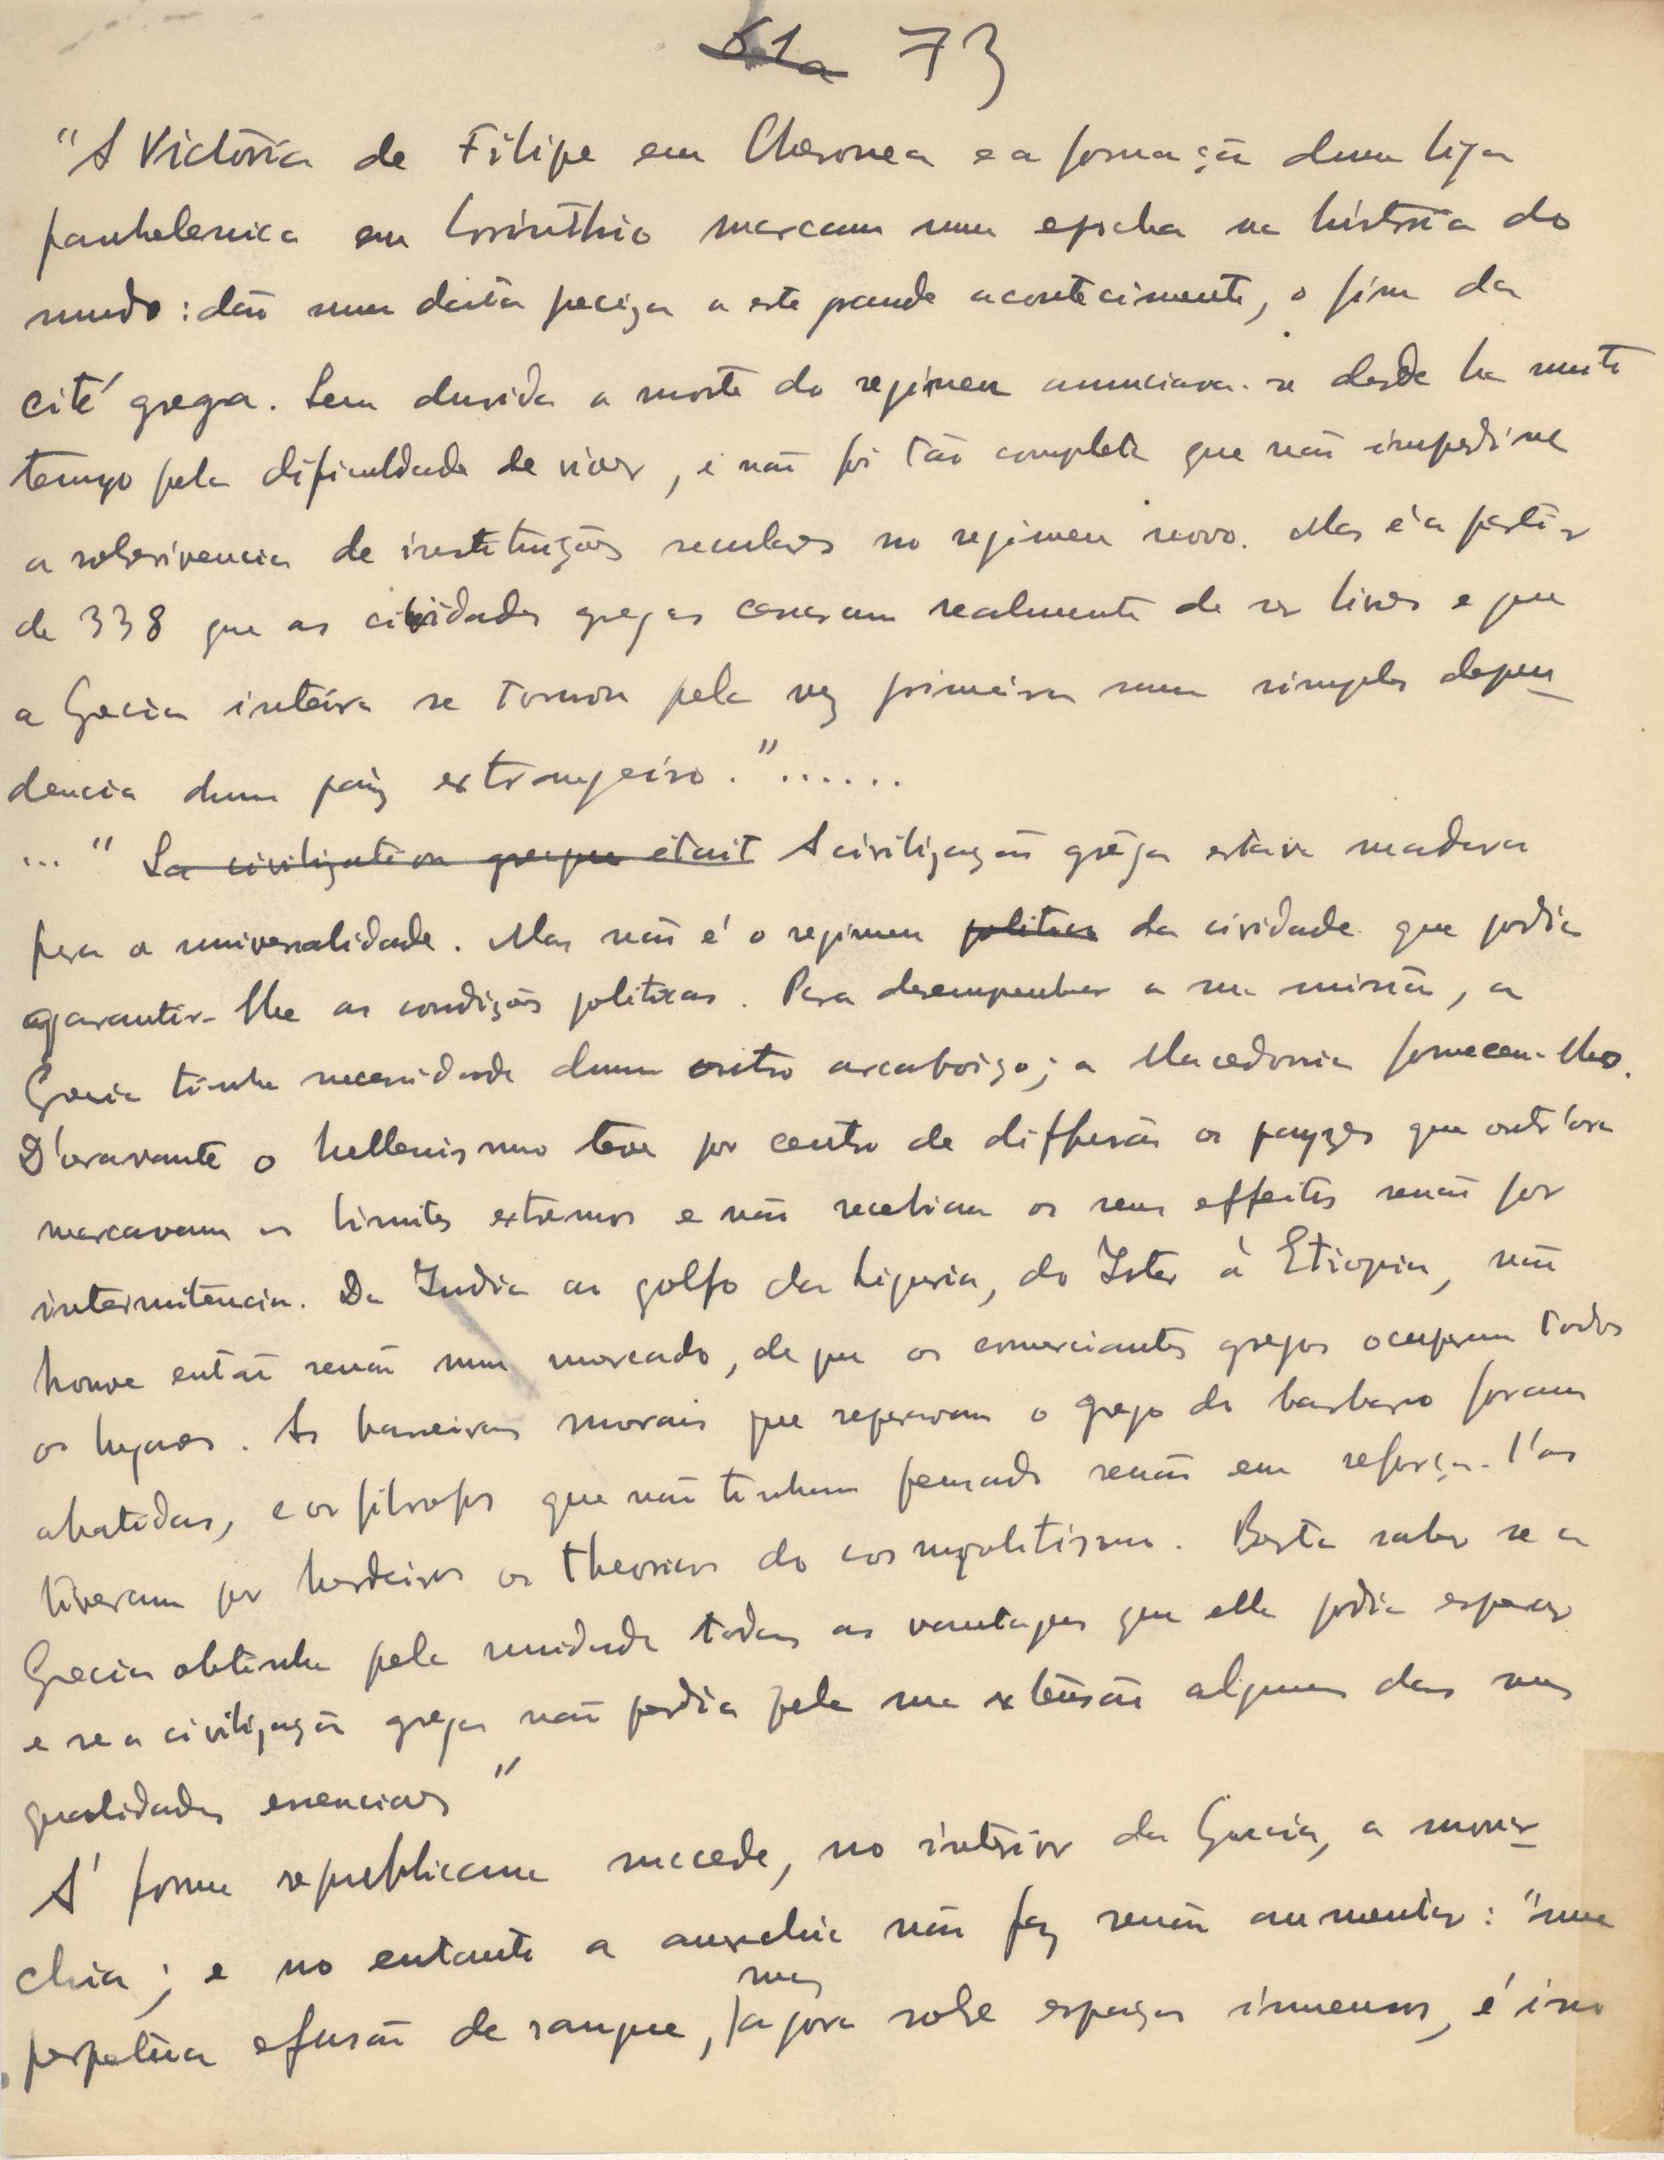 61a 73
"A Victoria de Filipe em Cheronea e a formação duma liga
panhelenica em Corinthio marcam uma epocha na história do
mundo: dão uma data preciza a este grande acontecimento, o fim da
cité grega. Sem duvida a morte do regimen annunciava-se desde ha muito
tempo pela dificuldade de viver, e não foi tão completa que não impedisse
a sobrevivencia de instituições seculares no regimen novo. Mas é a partir
de 338 que as cividades gregas cessam realmente de ser livres e que
a Grecia inteira se tornou pela vez primeira uma simples depen
dencia dum paiz extrangeiro."......
... " La civilization grecque était A civilização grêga estava madura
para a universalidade. Mas não é o regimen politico da cividade que podia
garantir-lhe as condições politicas. Para desempenhar a sua missão, a
Grecia tinha necessidade dum outro arcaboiço; a Macedonia forneceu-lho.
D'oravante o hellenismo teve por centro de diffusão os payzes que outr'ora
marcavam os limites extremos e não recebiam os seus effeitos senão por
intermitencia. Da India ao golfo da Liguria, do Ister à Etiopia, não
houve então senão um mercado, de que os comerciantes gregos ocuparam todos
os lugares. As barreiras morais que separavam o grego do barbaro foram
abatidas, e os filosofos que não tinham pensado senão em reforça-l'as
tiveram por herdeiros os theoricos do cosmopolitismo. Basta saber se a
Grecia obtinha pela unidade todas as vantagens que ella podia esperar
e se a civilização grega não perdia pela sua extensão algumas das suas
qualidades essenciaes"
A' forma republicana sucede, no interior da Grecia, a monar
chia; e no entanto a anarchia não faz senão aumentar: "uma
mas
perpetua efusão de sangue, agora sobre espaços immensos, é isso